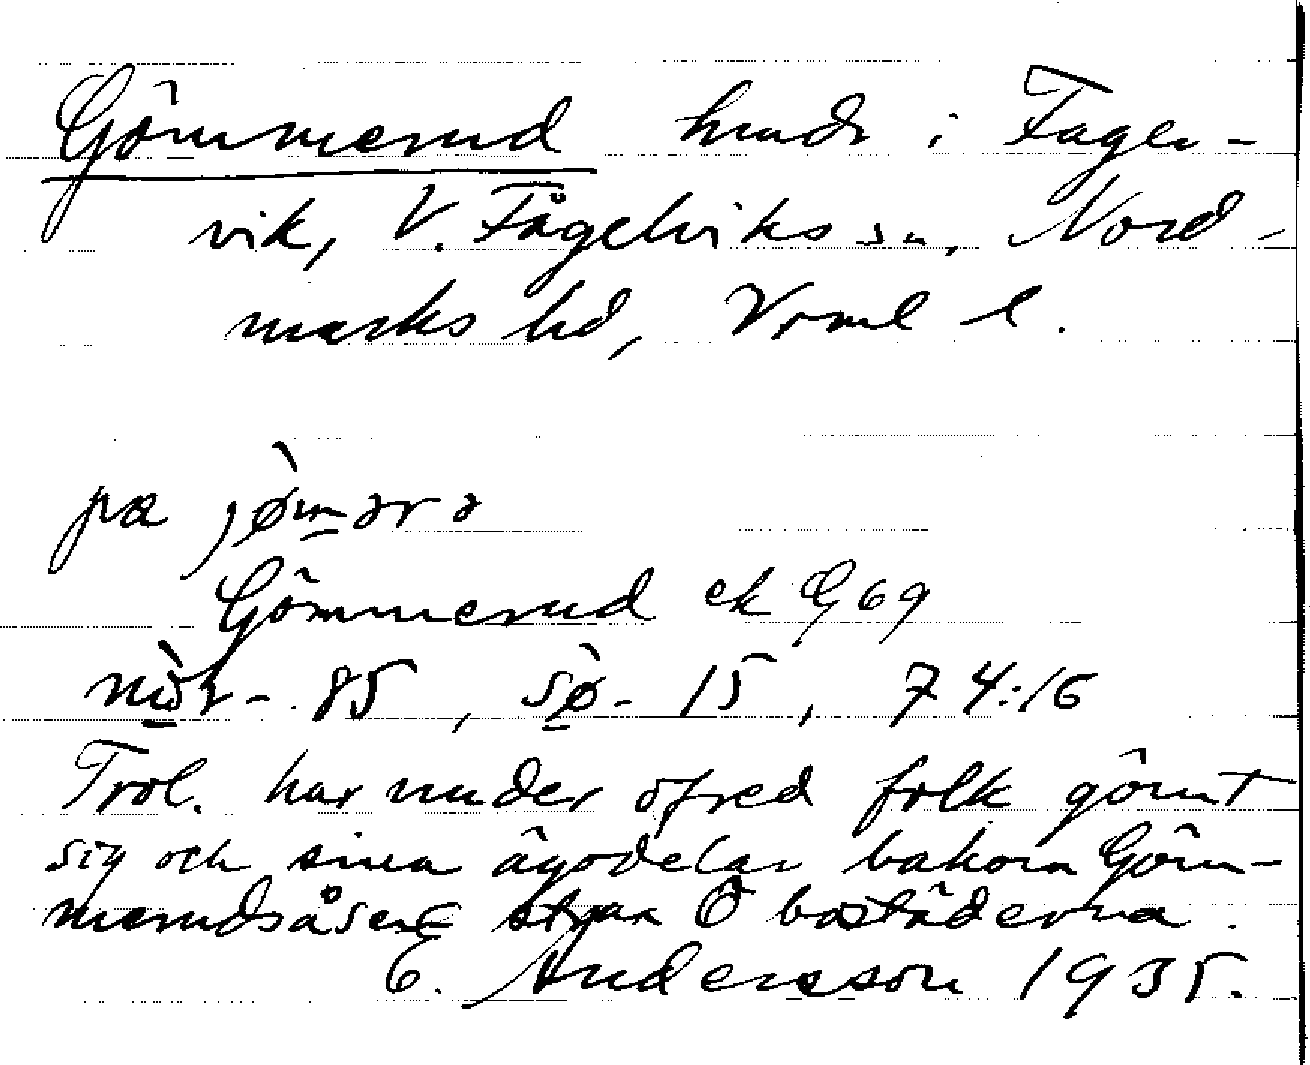 Gömmerud hmdr i Fager-
vik, V. Fågelviks sn, Nord-
marks hd, Vrml l.
pa jø̀mərə
Gömmerud ek G 69
85, sø̀- 15, 74:16
Trol. har under ofred folk gömt
sig och sina ägodelar bakom Göm-
merudsåsen strax Ö bostäderna.
E. Andersson 1935.